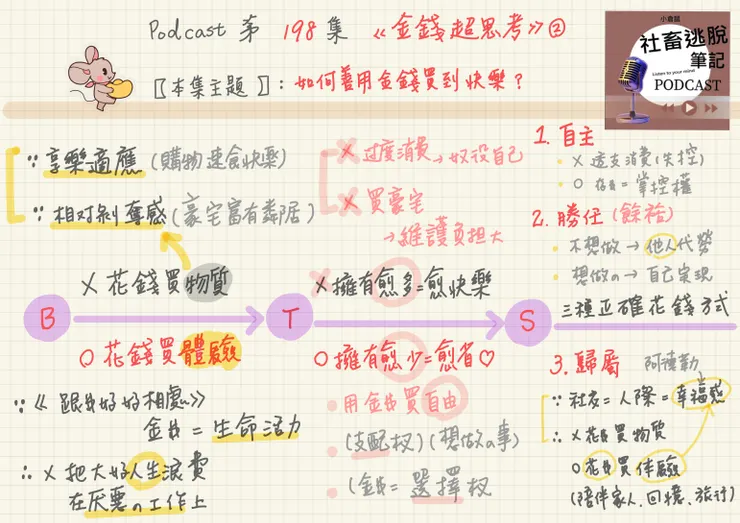 Podcast 第 198 集 《金錢超思考》②
〖本集主題〗：如何善用金錢買到快樂？
小倉鼠
社畜逃脫
筆記
Listen to your mind
PODCAST
∵ 享樂適應 (購物速食快樂)
∵ 相对剝奪感 (豪宅富有鄰居)
X 过度消費 → 奴役自己
X 買豪宅
→ 維護負担大
1. 自主
X 透支消費(失控)
O 存錢=掌控權
2. 勝任(餘裕)
不想做 → 他人代勞
想做の → 自己实現
B
X 花錢買物質
O 花錢買體驗
T
X 擁有愈多=愈快樂
O 擁有愈少=愈省♡
S
三種正確花錢方式
∵《跟錢好好相處》
金錢=生命活力
∴ X 把大好人生浪費
在厌悪の工作上
用金錢買自由
(支配权)(想做の事)
(金錢=選擇权
3. 歸屬
阿德勒
∵ 社友=人際=幸福感
∴ X 花錢買物質
O 花錢買体驗
(陪伴家人、回憶、旅行)